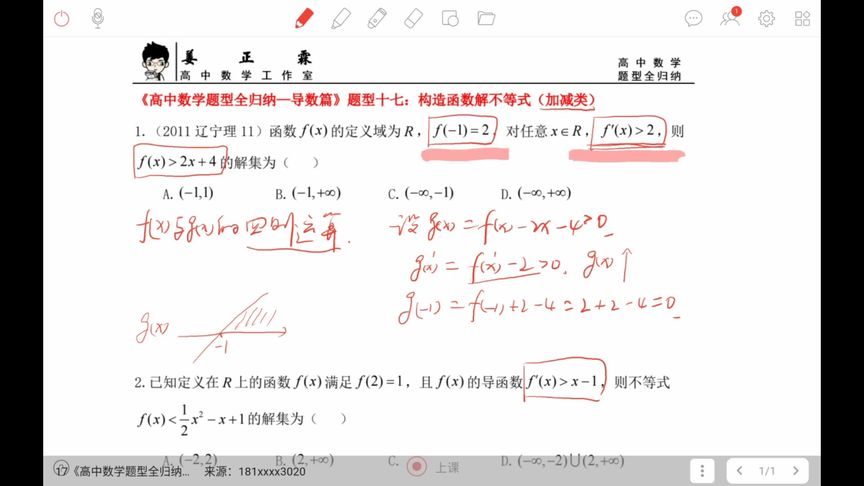 1
姜 正 霖
高中数学工作室
高中数学
题型全归纳
《高中数学题型全归纳—导数篇》题型十七：构造函数解不等式（加减类）
1.（2011 辽宁理 11）函数 f(x) 的定义域为 R， f(−1)=2， 对任意 x∈R， f′(x)>2， 则
f(x)>2x+4 的解集为（ ）
A. (−1,1) B. (−1,+∞) C. (−∞,−1) D. (−∞,+∞)
f(x)与g(x)的四则运算.
设 g(x)=f(x)−2x−4>0
g′(x)=f′(x)−2>0. g(x)↑
g(−1)=f(−1)+2−4=2+2−4=0
g(x)
−1
2.已知定义在 R 上的函数 f(x) 满足 f(2)=1， 且 f(x) 的导函数 f′(x)>x−1， 则不等式
f(x)<1/2x²−x+1 的解集为（ ）
A. (−2,2) B. (2,+∞) C. D. (−∞,−2)∪(2,+∞)
17《高中数学题型全归纳... 来源：181xxxx3020 上课 1/1